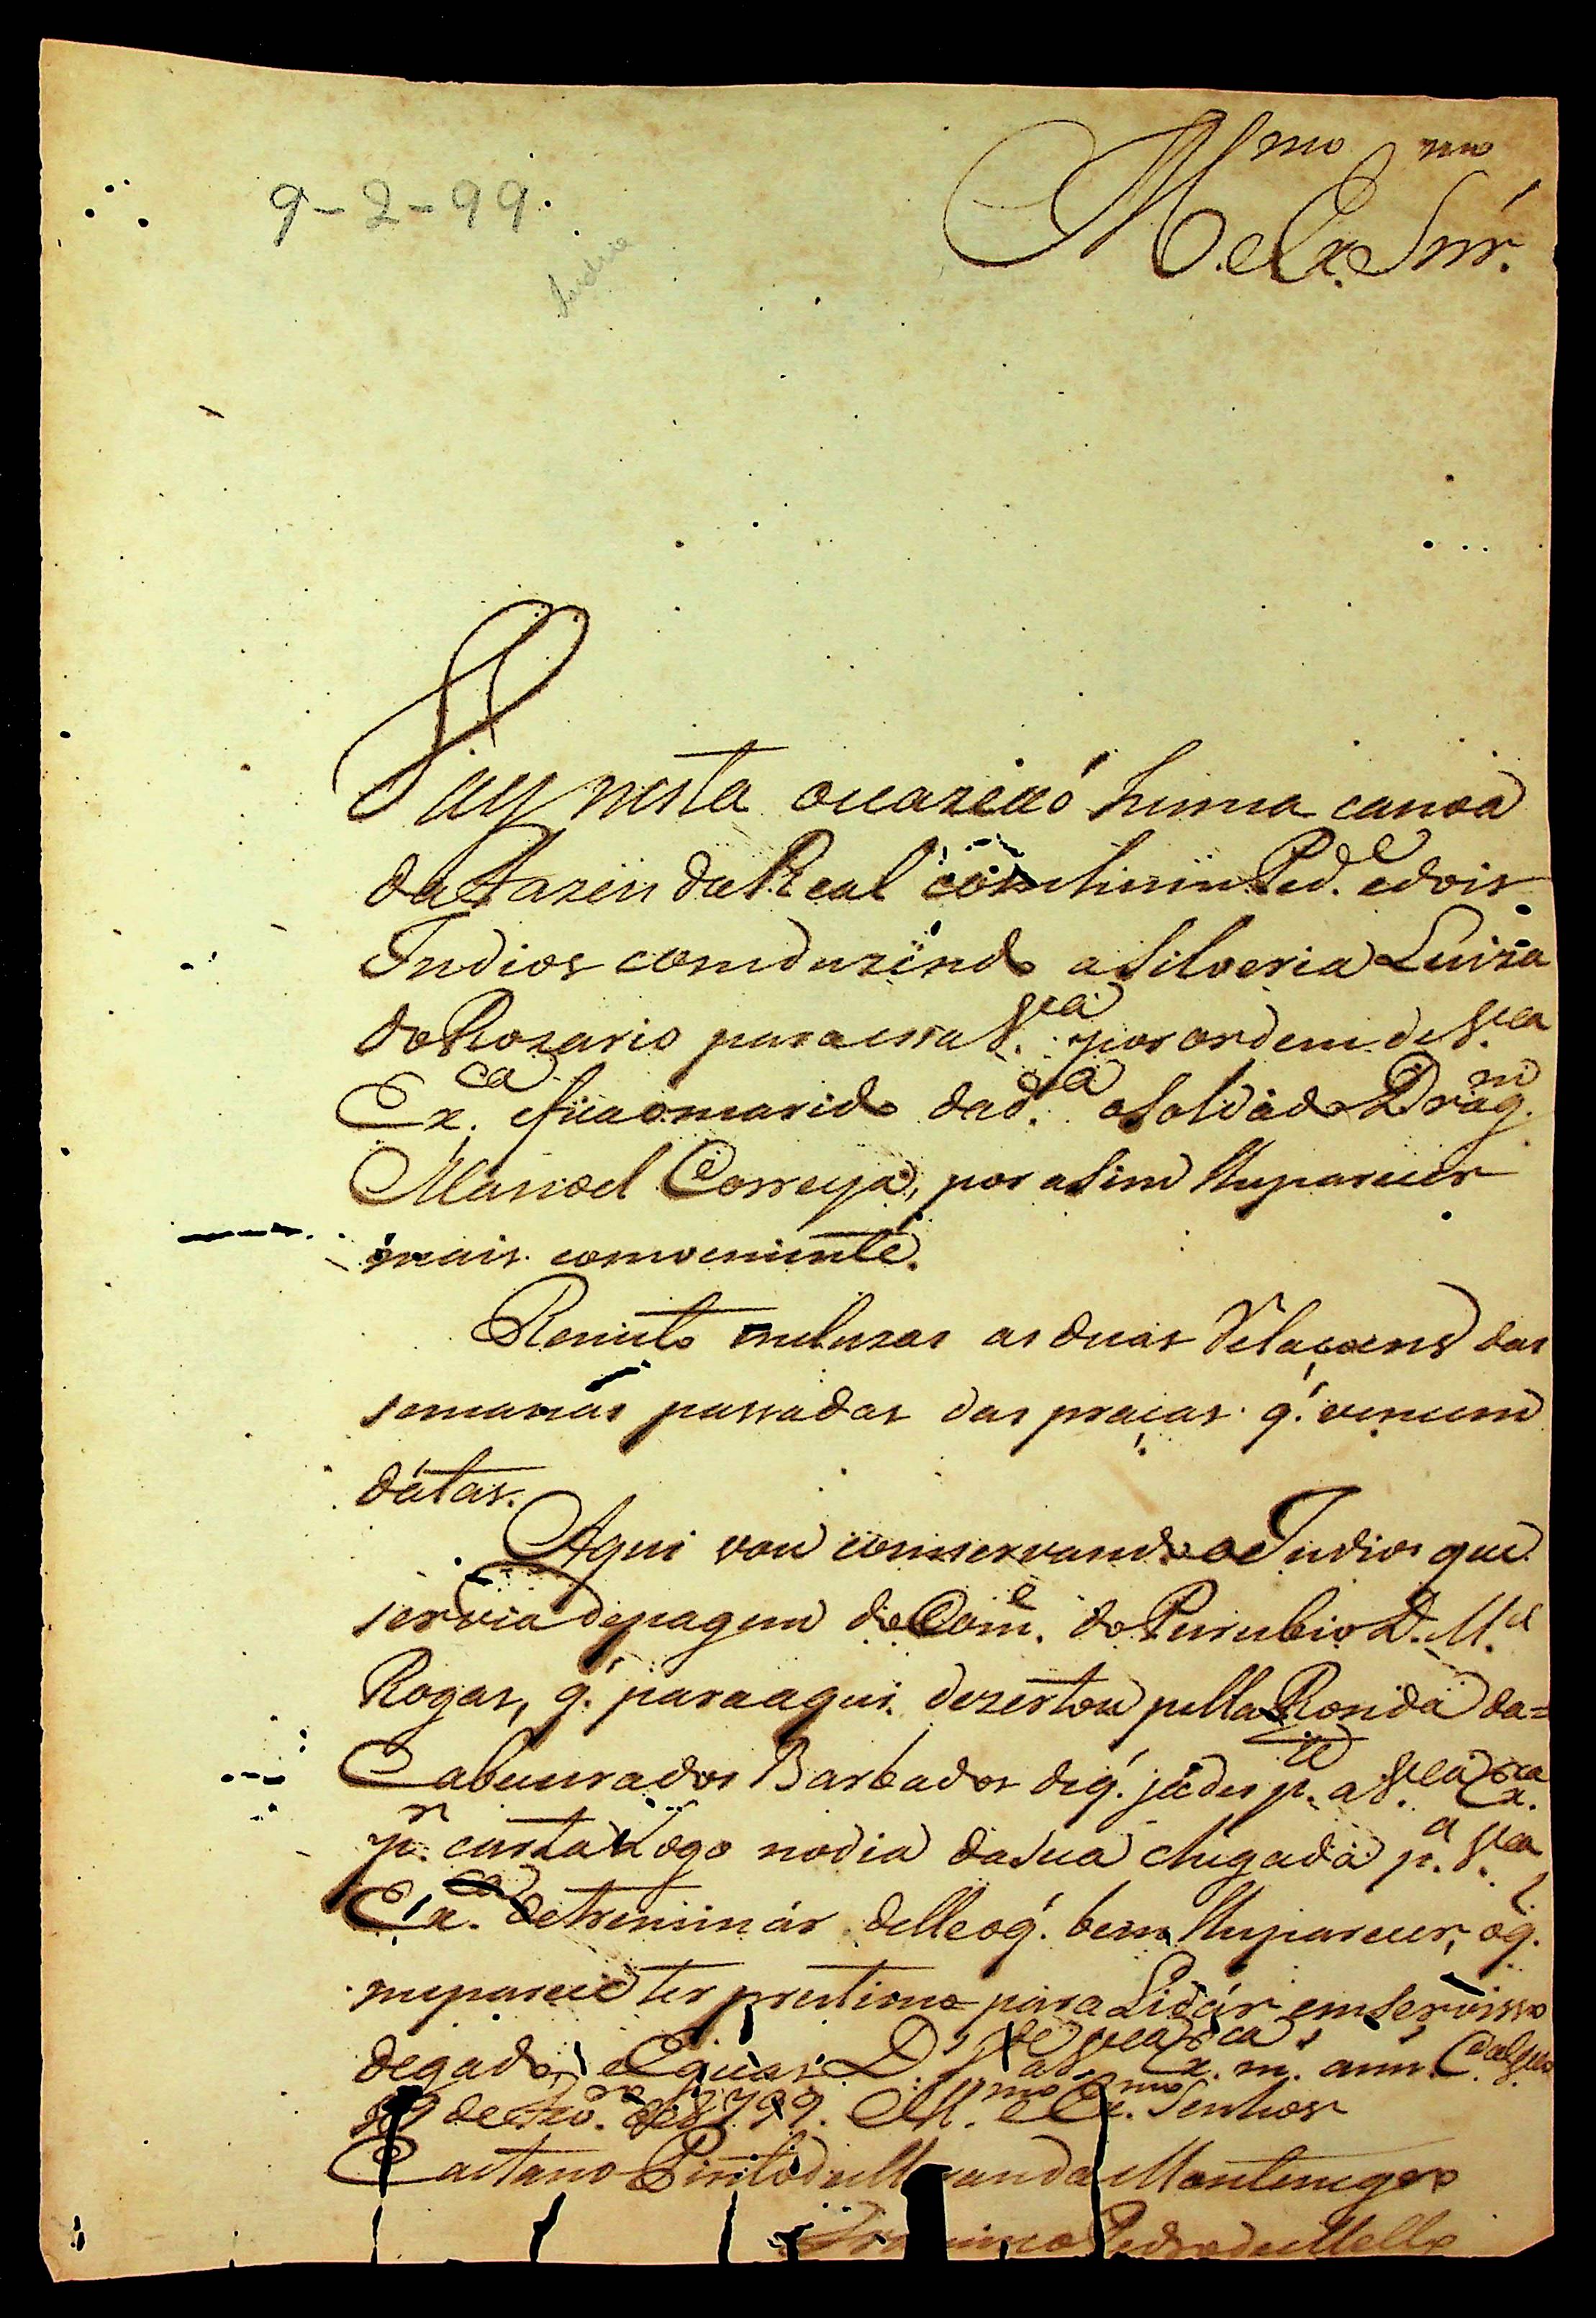 9-2-99.
India
Ill.mo e Ex.mo Snr.
Say nesta ocazião huma canoa
da Fazenda Real com hum Ped.e e dois
Indios comduzindo a Silveria Luiza
do Rozario para essa V.ca por ordem de V.ca
Ex.ca e fica o marido da d.a o Soldado Drag.m
Manoel Correya, por aSim lhe parecer
mais conveniente.
Remeto incluzas as duas Relaçoens das
semanas passadas das praças q. vencem
datas.
Aqui vou comservando o Indio que
servia de pagem do Com.e do Purubio D. M.el
Rogas, q. para aqui dezertou pella Ronda da=
Cabeura dos Barbados de q. já dei p.te a V.ca Ex.ca
p.r carta logo no dia da sua chegada p.a V.ca
Ex.ca detreminar delle o q. bem lhe parecer, o q.
me parece ter prestimo para Lidár em servisso
de gado, e Egúas D.s g.de a V.ca Ex.ca m. ann.
9 de Fev.ro de 1799. Ill.mo e Ex.mo Senhor
Caetano Pinto de Miranda Montenegro
Francisco Pedro de Mello